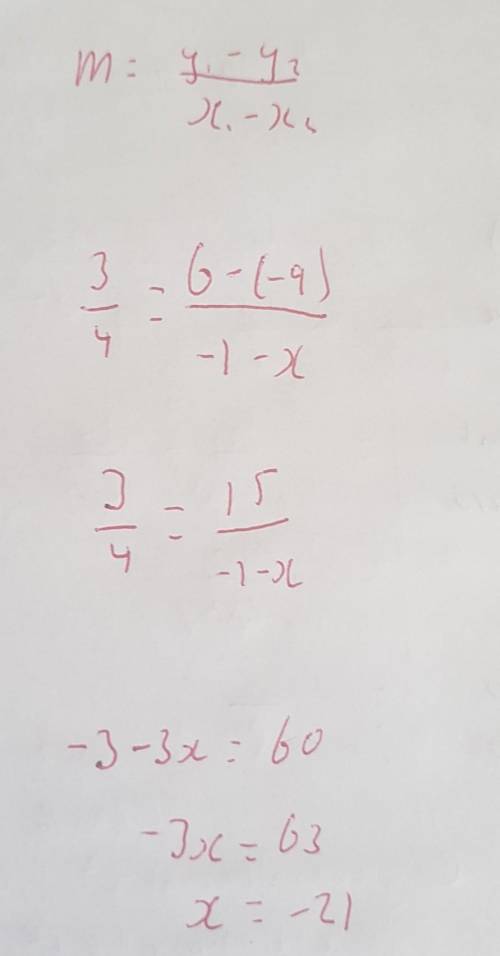 m = y₁ - y₂ / x₁ - x₂
3/4 = 6-(-9) / -1-x
3/4 = 15 / -1-x
-3-3x = 60
-3x = 63
x = -21